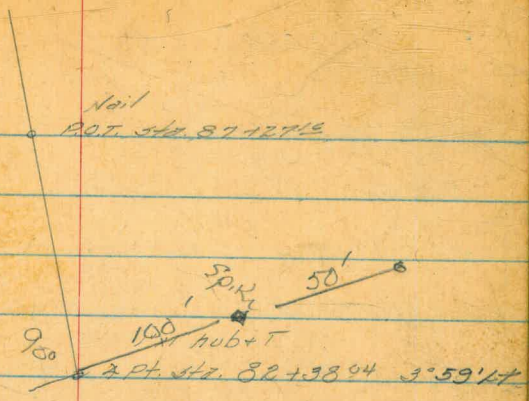 Nail
P.O.T. sta. 87+27 10
50'
Spik
100'
hub+T
90°
∠ Pt. sta. 82+38 04 3°59' Lt